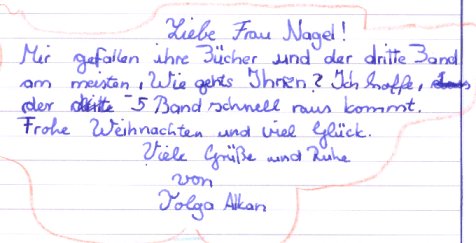 Liebe Frau Nagel!
Mir gefallen ihre Bücher und der dritte Band
am meisten, Wie gehts Ihnen? Ich hoffe,
der 5 Band schnell raus kommt.
Frohe Weihnachten und viel Glück.
Viele Grüße und Ruhe
von
Tolga Alkan